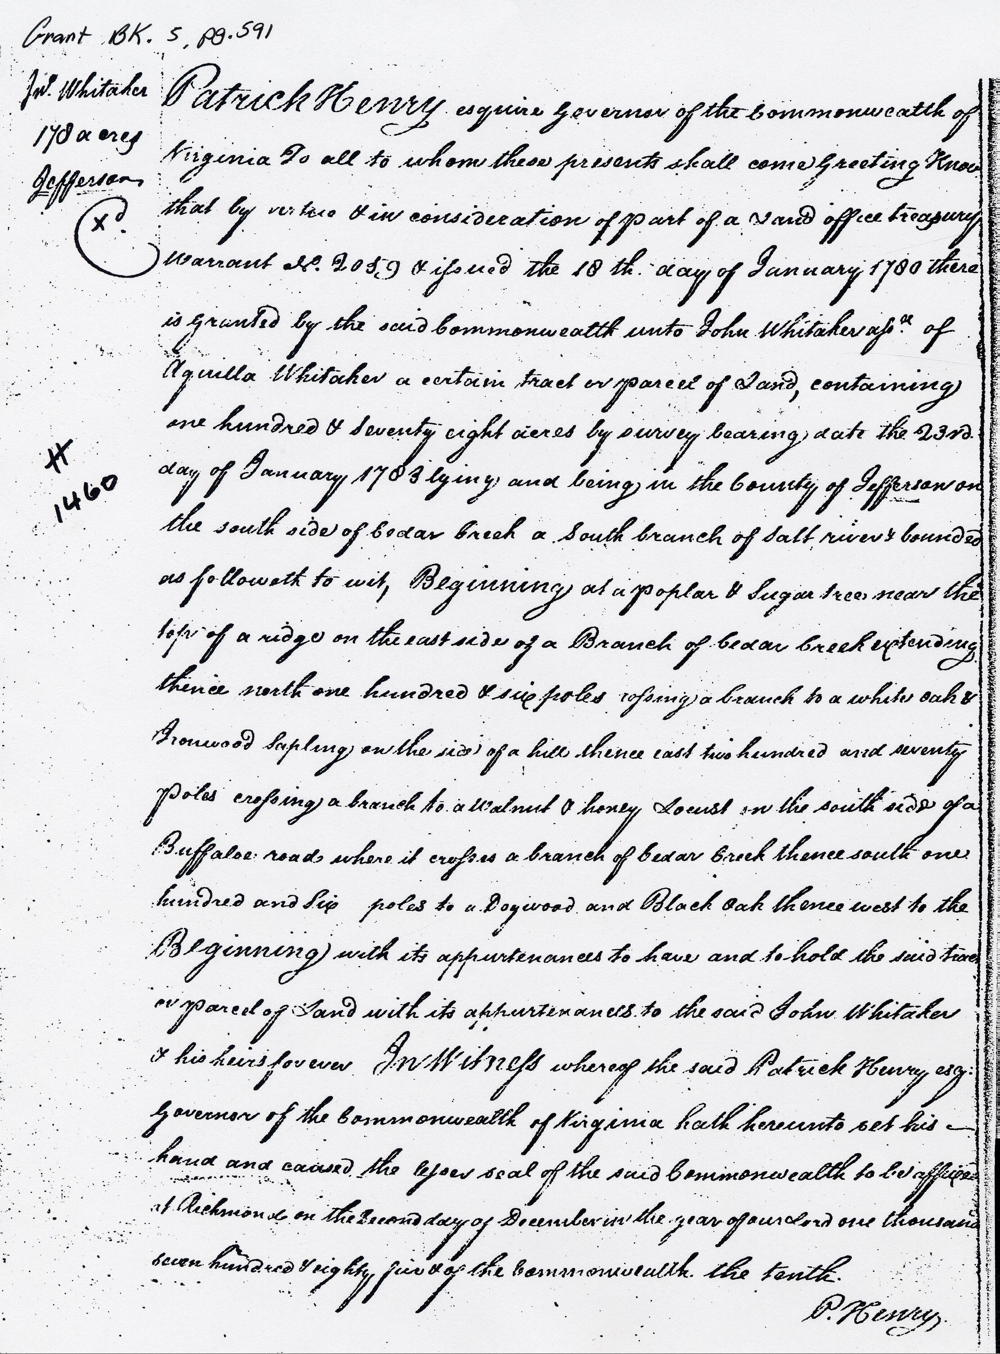 Grant BK. 5, pg. 591
Jno. Whitaker
178 acres
Jefferson
Xd.
#
1460
Patrick Henry esquire Governor of the Commonwealth of
Virginia To all to whom these presents shall come Greeting Know
that by virtue & in consideration of part of a Land office treasury
Warrant No. 2059 & issued the 18th. day of January 1780 there
is granted by the said Commonwealth unto John Whitaker asse. of
Aquilla Whitaker a certain tract or parcel of Land, containing
one hundred & Seventy eight acres by survey bearing date the 23rd.
day of January 1783 lying and being in the County of Jefferson on
the south side of Cedar Creek a South branch of Salt river & bounded
as followeth to wit, Beginning at a poplar & Sugar tree near the
top of a ridge on the east side of a Branch of Cedar Creek extending
thence north one hundred & six poles crossing a branch to a white oak &
Ironwood Sapling on the side of a hill thence east two hundred and seventy
poles crossing a branch to a Walnut & honey Locust on the south side of a
Buffaloe road where it crosses a branch of Cedar Creek thence south one
hundred and Six poles to a Dogwood and Black Oak thence west to the
Beginning with its appurtenances to have and to hold the said tract
or parcel of Land with its appurtenances to the said John Whitaker
& his heirs forever In Witness whereof the said Patrick Henry esq:
Governor of the Commonwealth of Virginia hath hereunto set his
hand and caused the lesser seal of the said Commonwealth to be affixed
at Richmond on the Second day of December in the year of our Lord one thousand
seven hundred & eighty five & of the Commonwealth the tenth.
P. Henry